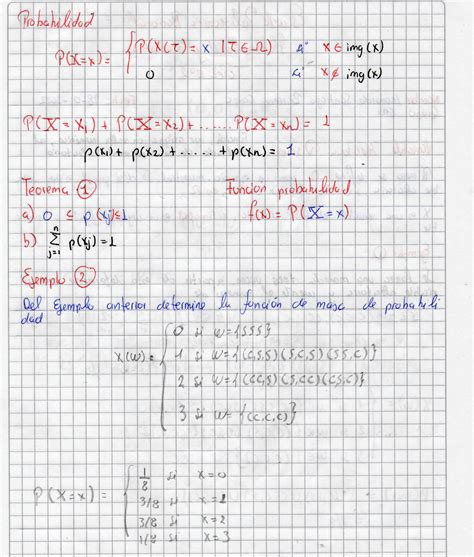 Probabilidad
P(X=x) = { P(X(τ) = x | τ ∈ Ω) si x ∈ img(x)
0 si x ∉ img(x)
P(X = x₁) + P(X = x₂) + ...... P(X = xn) = 1
p(x₁) + p(x₂) + ...... + p(xn) = 1
Teorema ①
Función probabilidad
a) 0 ≤ p(xj) ≤ 1
f(x) = P(X = x)
b) ∑ⁿj=1 p(xj) = 1
Ejemplo ②
Del Ejemplo anterior determine la función de masa de probabili
dad
X(w) = { 0 si w = {sss}
1 si w = {(c,s,s) (s,c,s) (ss,c)}
2 si w = {(cc,s) (s,cc) (cs,c)}
3 si w = {(c,c,c)}
P(X=x) = { 1/8 si x=0
3/8 si x=1
3/8 si x=2
1/8 si x=3